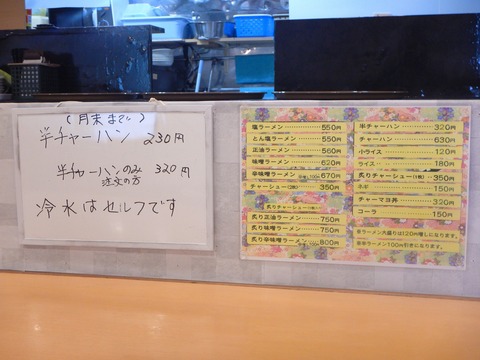 (月末まで)
半チャーハン 230円
半チャーハンのみ 320円
注文の方
冷水はセルフです
塩ラーメン 550円
とん塩ラーメン 560円
正油ラーメン 560円
味噌ラーメン 620円
辛味噌ラーメン 670円
チャーシュー(2枚) 350円
炙りチャーシュー
炙り正油ラーメン 750円
炙り味噌ラーメン 750円
炙り辛味噌ラーメン 800円
半チャーハン 320円
チャーハン 630円
小ライス 120円
ライス 180円
炙りチャーシュー 350円
ネギ 150円
チャーマヨ丼 320円
コーラ 150円
※ラーメン大盛りは120円増しになります。
100円引きになります。